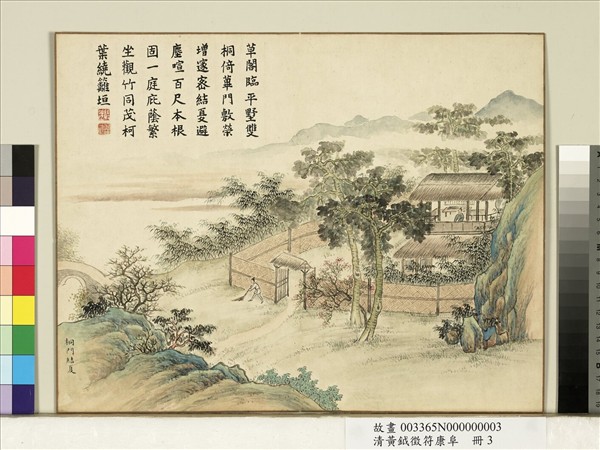 草閣臨平墅雙
桐倚蓽門敷榮
增邃密結夏避
塵喧百尺本根
固一庭庇蔭繁
坐觀竹同茂柯
葉繞籬垣
桐門結夏
故畫 003365N000000003
清黃鉞徵符康阜 冊 3